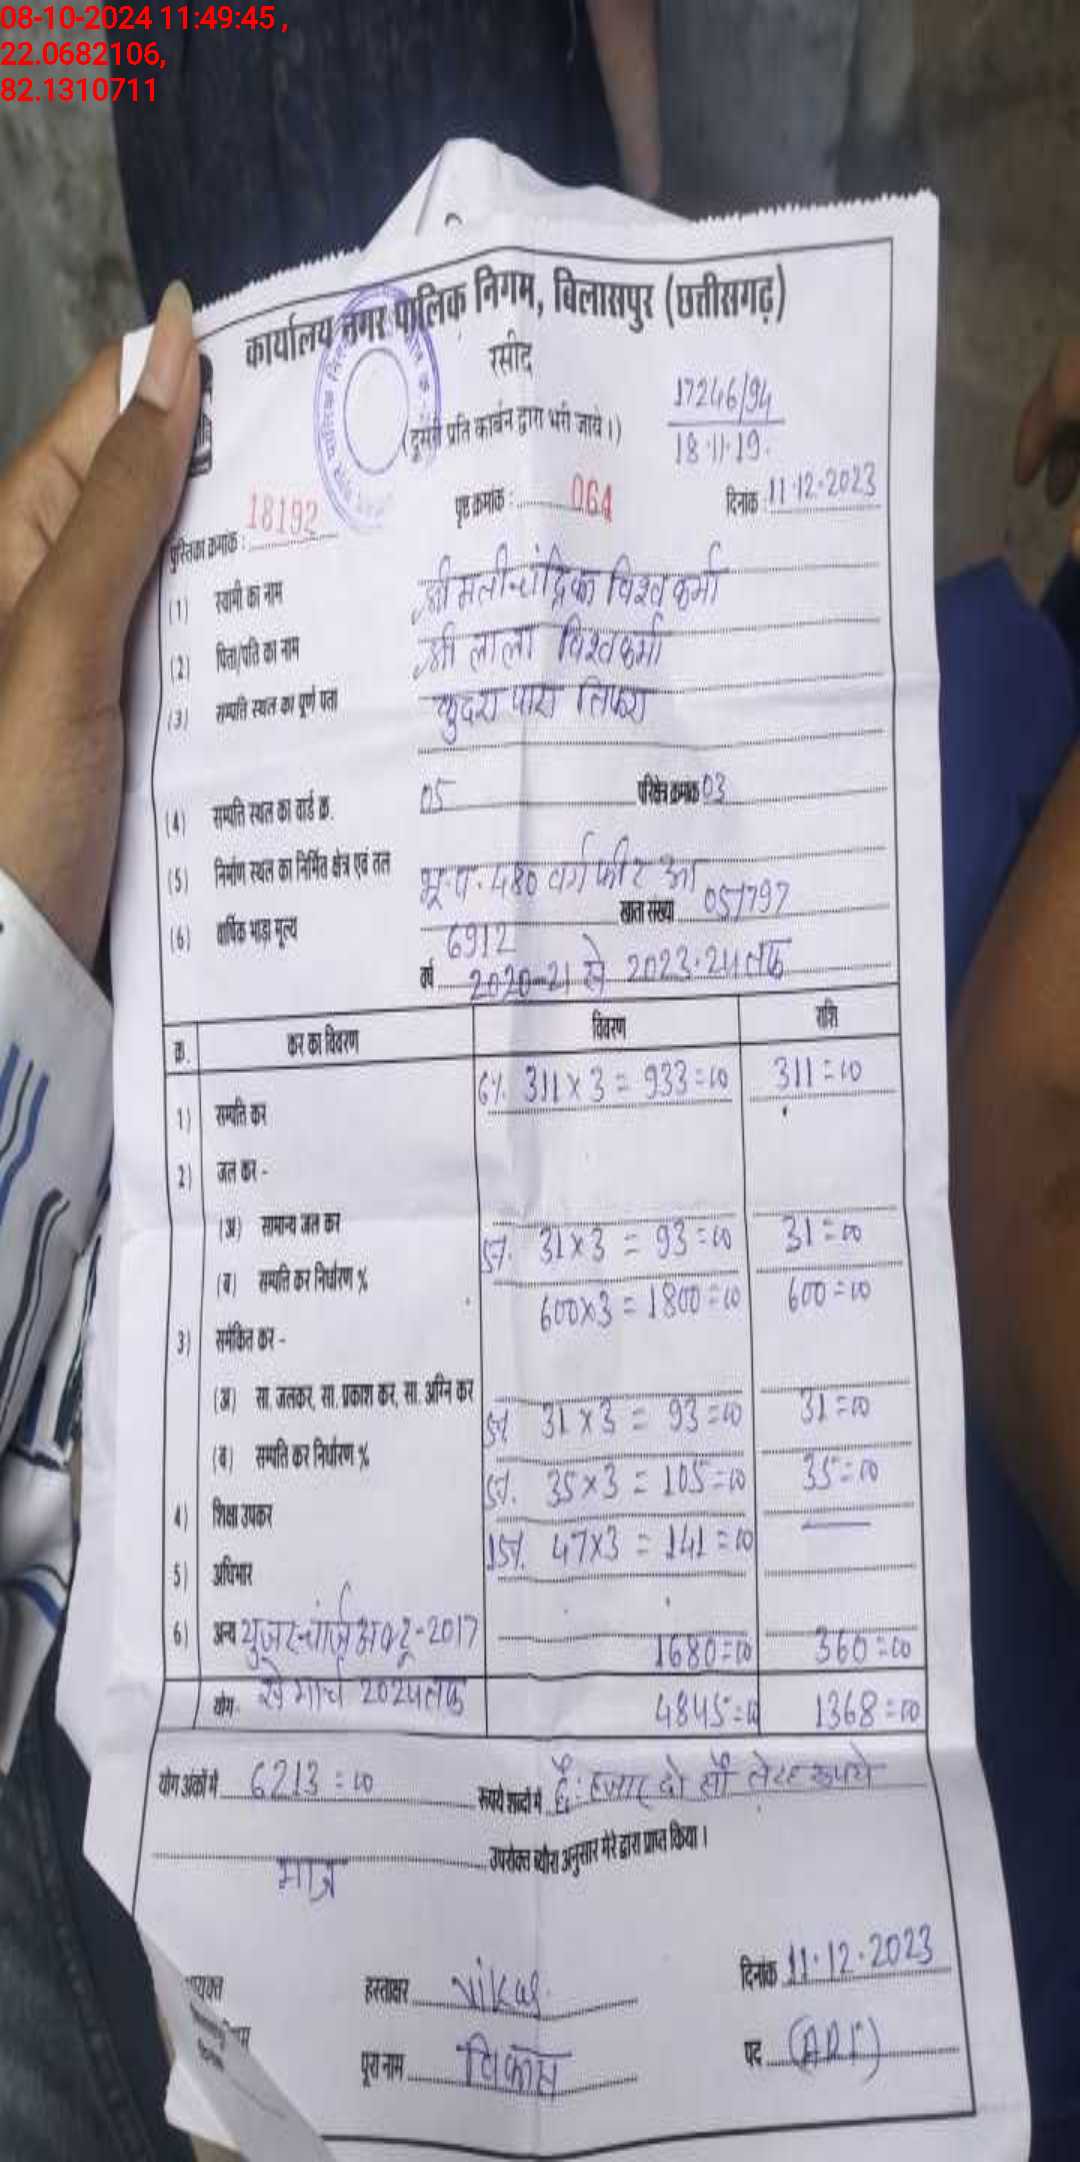 08-10-2024 11:49:45 ,
22.0682106,
82.1310711
कार्यालय नगर पालिक निगम, बिलासपुर (छत्तीसगढ़)
रसीद
(दूसरी प्रति कार्बन द्वारा भरी जाये।)
17246/94
18.11.19.
पुस्तिका क्रमांक : 18192 पृष्ठ क्रमांक : 064 दिनांक 11.12.2023
(1) स्वामी का नाम श्रीमती चंद्रिका विश्वकर्मा
(2) पिता/पति का नाम श्री लाला विश्वकर्मा
(3) सम्पति स्थल का पूर्ण पता कुदरा पारा तिफरा
(4) सम्पति स्थल का वार्ड क्र. 05 परिक्षेत्र क्रमांक 03
(5) निर्माण स्थल का निर्मित क्षेत्र एवं तल भू.त. 480 वर्ग फीट
(6) वार्षिक भाड़ा मूल्य 6912 खाता संख्या 051797
वर्ष 2020-21 से 2023-24 तक
क्र. कर का विवरण विवरण राशि
1) सम्पति कर 6% 311 x 3 = 933=00 311=00
2) जल कर -
(अ) सामान्य जल कर
(ब) सम्पति कर निर्धारण % 5%. 31 x 3 = 93=00 31=00
3) समेकित कर - 600x3 = 1800=00 600=00
(अ) सा. जलकर, सा. प्रकाश कर, सा. अग्नि कर
(ब) सम्पति कर निर्धारण % 5% 31 x 3 = 93=00 31=00
4) शिक्षा उपकर 5%. 35 x 3 = 105=00 35=00
5) अधिभार 15%. 47x3 = 141=00 —
6) अन्य युजर चार्ज अक्टू-2017 1680=00 360=00
से मार्च 2024 तक
योग- 4845=00 1368=00
योग अंकों में 6213=00 रूपये शब्दों में छैः हजार दो सौ तेरह रूपये
मात्र उपरोक्त ब्यौरा अनुसार मेरे द्वारा प्राप्त किया।
हस्ताक्षर Vikas. दिनांक 11.12.2023
पूरा नाम विकास पद (ARI)